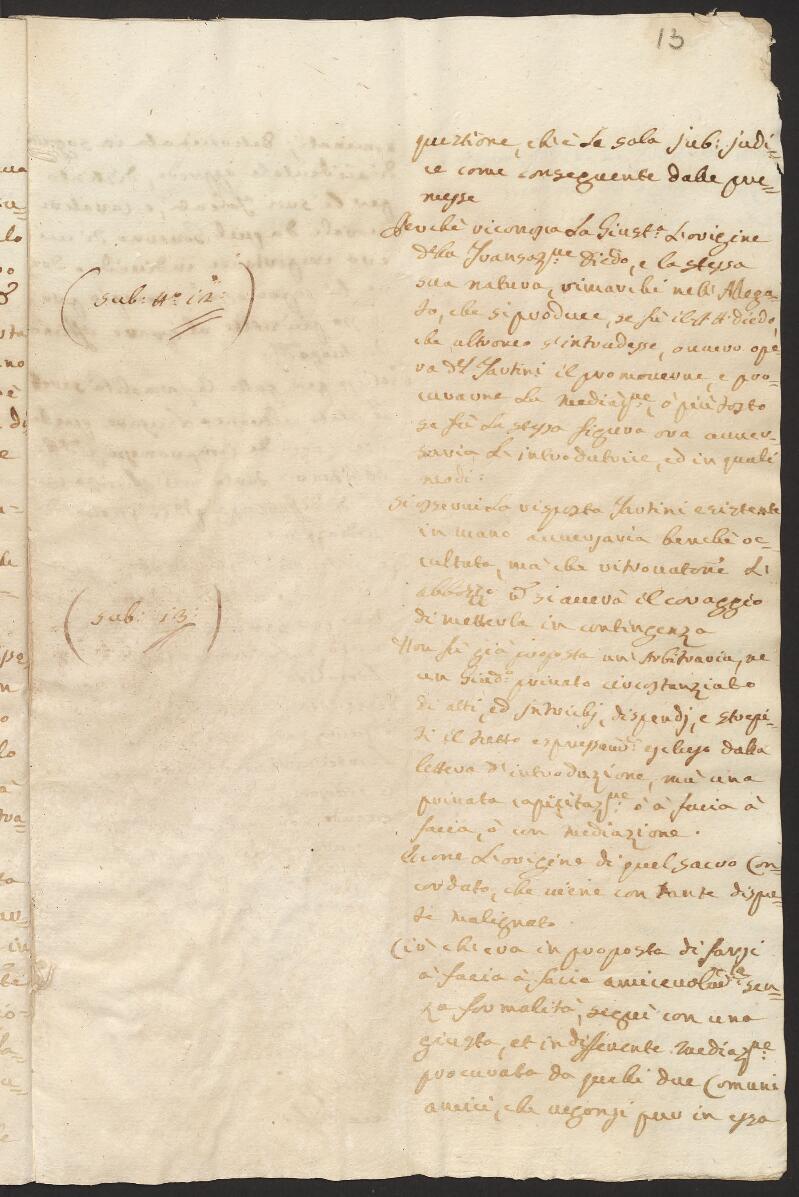 13
questione, ch'è la sola sub: judi=
ce come conseguente dalle pre=
messe
Perchè riconosca la Giust.a l'origine
della Transaz.ne Diedo, e la stessa
sua natura, rimarchi nell'Allega=
to, che si produce, se fù il
che altroneo s'intradesse, o vvero opè=
ra del Tartini il promoverne, e pro=
curarne la mediaz.ne, ò più tosto
se fù la stessa figura ora avver=
saria l'introdutrice, ed in quali
modi:
(sub: n.o 12:)
Si osservi la risposta Tartini esistente
in mano avversaria benchè oc=
cultata, mà che ritrovatone l'
abbozzo si averà il coraggio
di metterla in contingenza
(sub: 13:)
Non fù già proposta un'Arbitraria, ne
un Giud.o privato circostanziato
di atti, ed intrichi, dispendj, e strepi=
ti il tutto espressam.te escluso dalla
lettera d'introduzione, mà una
privata ò à facia à
facia, ò con mediazione.
Eccone l'origine di quel sacro Con=
cordato, che viene con tante dispu=
te malignato.
Ciò ch'era in proposta di farsi
à facia à facia amicevolm.te sen=
za formalità, seguì con una
giusta, et indifferente mediaz.ne
procurata da quelli due Comuni
amici, che vegonsi pur in essa